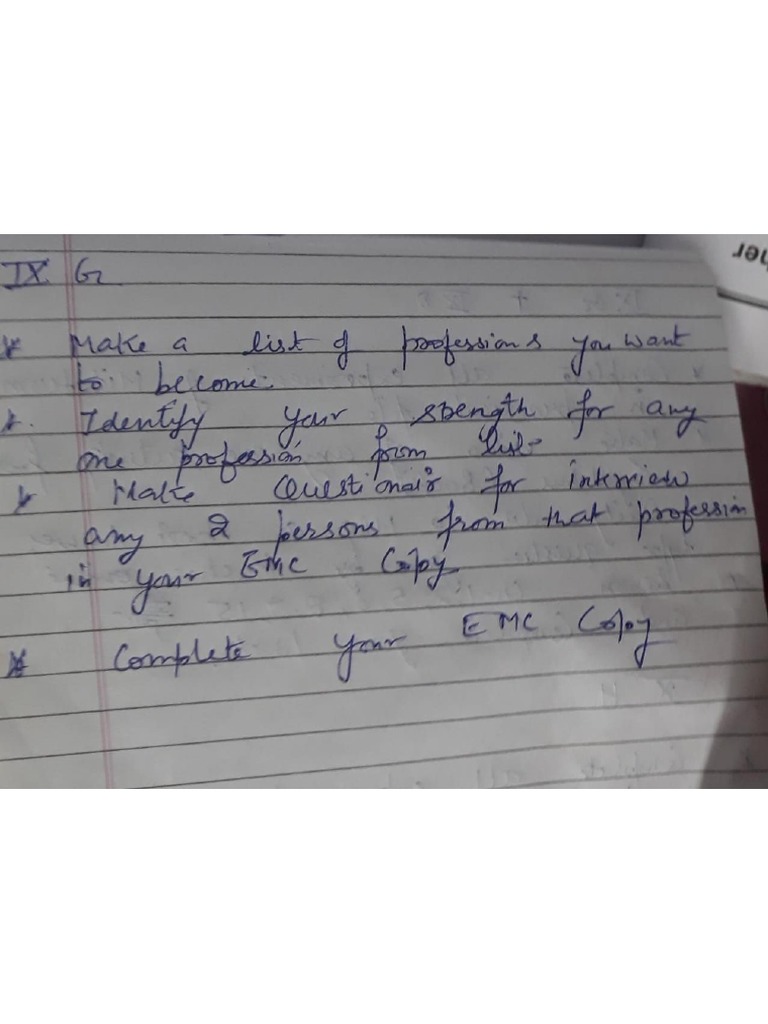 IX G
* Make a list of professions you want
to become.
*. Identify your stength for any
one profession from list
* Make Questionair for interview
any 2 persons from that profession
in your EMC Copy
* Complete your EMC Copy
her